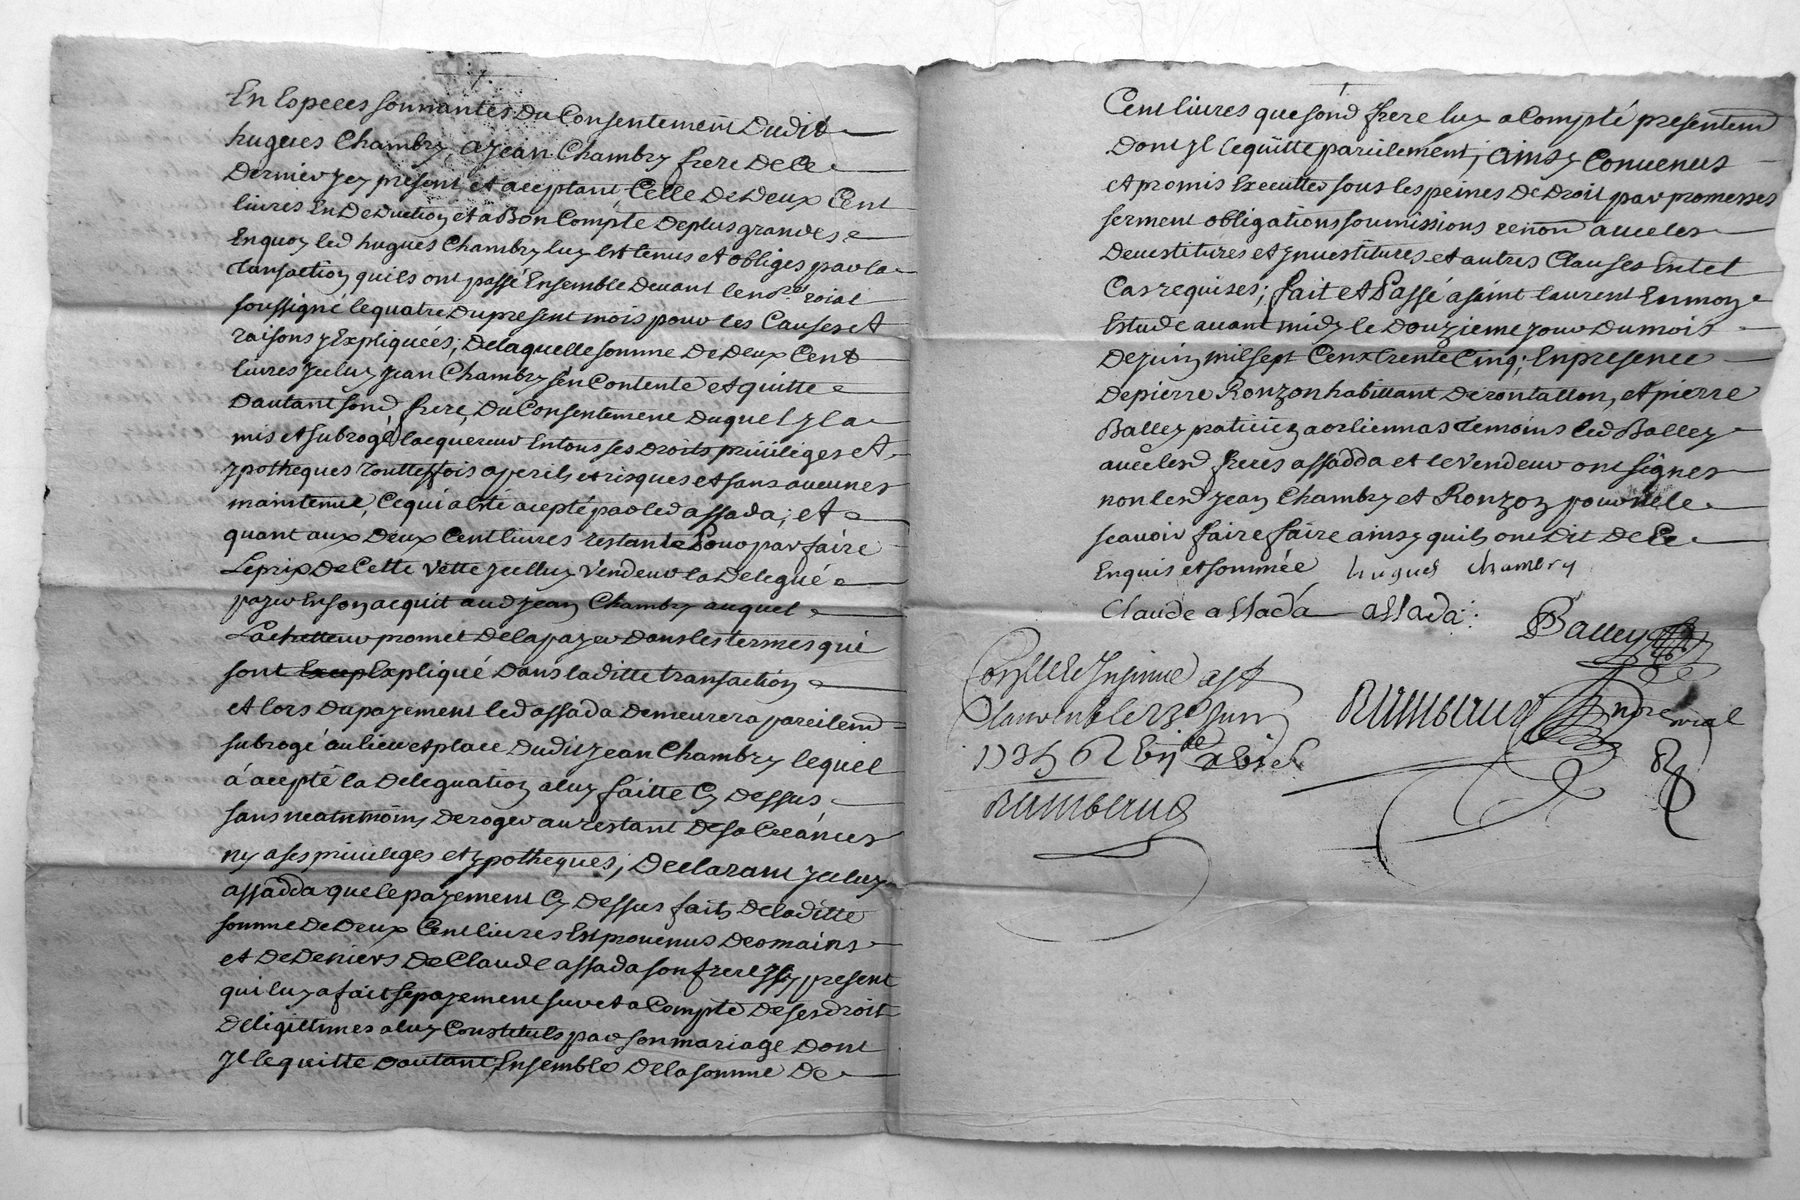 En Especes sonnantes Du Consentement Dudit
hugues Chambry, a Jean Chambry frere De Ce
Dernier jcy present, et aceptant, Celle De Deux Cent
livres En Deduction et a Bon Compte De plus grandes
En quoy led hugues Chambry luy Est tenus et obligés par la
transaction quils ont passé Ensemble Devant le nore roial
soussigné le quatre Du present mois pour les Causes et
raisons y Expliquéés; De laquelle somme De Deux Cent
livres jcelluy Jean Chambry sen Contente et quitte
Dautant sond. frere, Du Consentement Duquel y la
mis et subrogé lacquereur En tous ses Droits privileges et
ypotheques touttesfois a perils et risques et sans aucunes
maintenue, Ce qui a Esté acepté par led assada; et
quant aux Deux Cent livres restante Pour parfaire
Le prix De Cette vette jcelluy Vendeur la Delegué
payer En son acquit aud Jean Chambry auquel
Lachetteur promet De la payer Dans les termes qui
sont Expliqué Dans laditte transaction
et lors Du payement led assada Demeurera pareilemd
subrogé au lieu et place Dudit Jean Chambry lequel
á acepté la Deleguation a luy faitte Cy Dessus
sans neatnmoins Deroger au restant De sa Creánces
ny a ses privileges et ypotheques; Declarant jceluy
assadda que le payement Cy Dessus fait, De laditte
somme De Deux Cent livres Est provenus De mains
et De Deniers De Claude assada son frere jcy present
qui luy a fait se payement sur et a Compte De ses droit
De ligittimes a luy Constitués par son mariage Dont
Jl le quitte Dautant Ensemble De la somme De
Cent livres que sond frere luy a Compté presentem̄
Dont yl le quitte pareilement; ainsy Convenus
et promis Executter sous les peines De Droit par promesses
serment obligations soumissions renon avec les
Devestitures et jnvestitures et autres Clauses En tel
Cas requises; fait et Passé a saint laurent En mon
Estude avant midy le Douzieme jour Du mois
De juin mil sept Cent trente Cinq; En presence
De pierre Ronzon habittant De rontallon, et pierre
Balley praticien a orliennas temoins led Balley
avec lesd freres assadda et le Vendeur ont signes
non lesd Jean Chambry et Ronzon pour ne le
scavoir faire faire ainsy quils ont Dit De Ce
Enquis et sommée hugues chambry
Claude assada assada: Balley
Conllé Insinué a St
Laurent le 12e Juin
1735
Rambaud
Rambaud